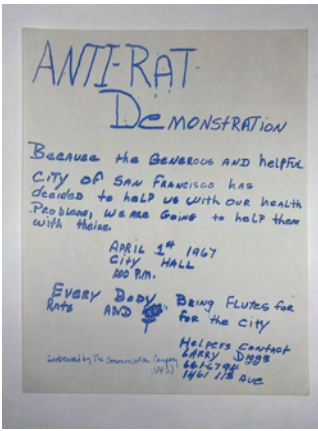 ANTI-RAT
DEMONSTRATION
BECAUSE the GENEROUS AND helpful
CITY OF SAN FRANCISCO has
decided to help us with our health
Problems, we are Going to help them
with theirs.
APRIL 1st 1967
CITY HALL
P.M.
EVERY BODY BRING FLUTES for
RATS AND for the CITY
Helpers Contact
LARRY
661-6794
1461 11th AVE
by The Communication Company
(UPS)